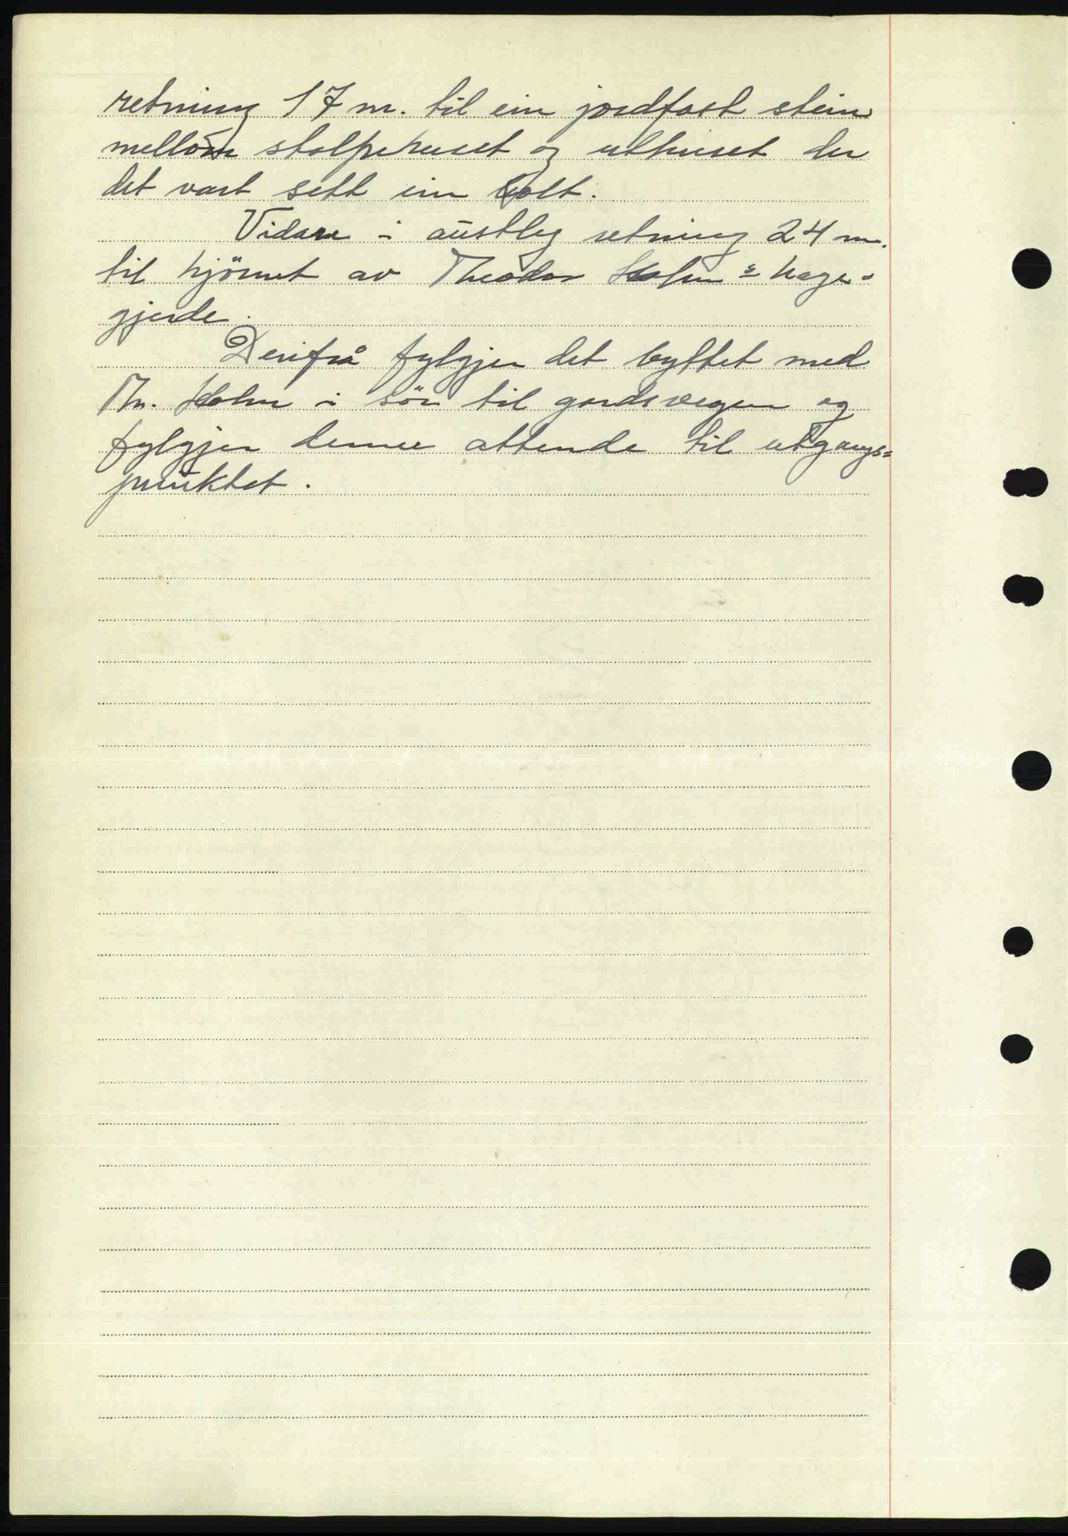 retning 17 m. til ein jordfast stein
mellom stolpehuset og uthuset der
det vart sett inn bolt.
Vidare i austleg retning 24 m.
til hjörnet av Theodor Holm's hage-
gjerde.
Derifrå fylgjer det byttet med
Th. Holm i sör til gardsvegen og
fylgjer denne attende til utgangs=
punktet.